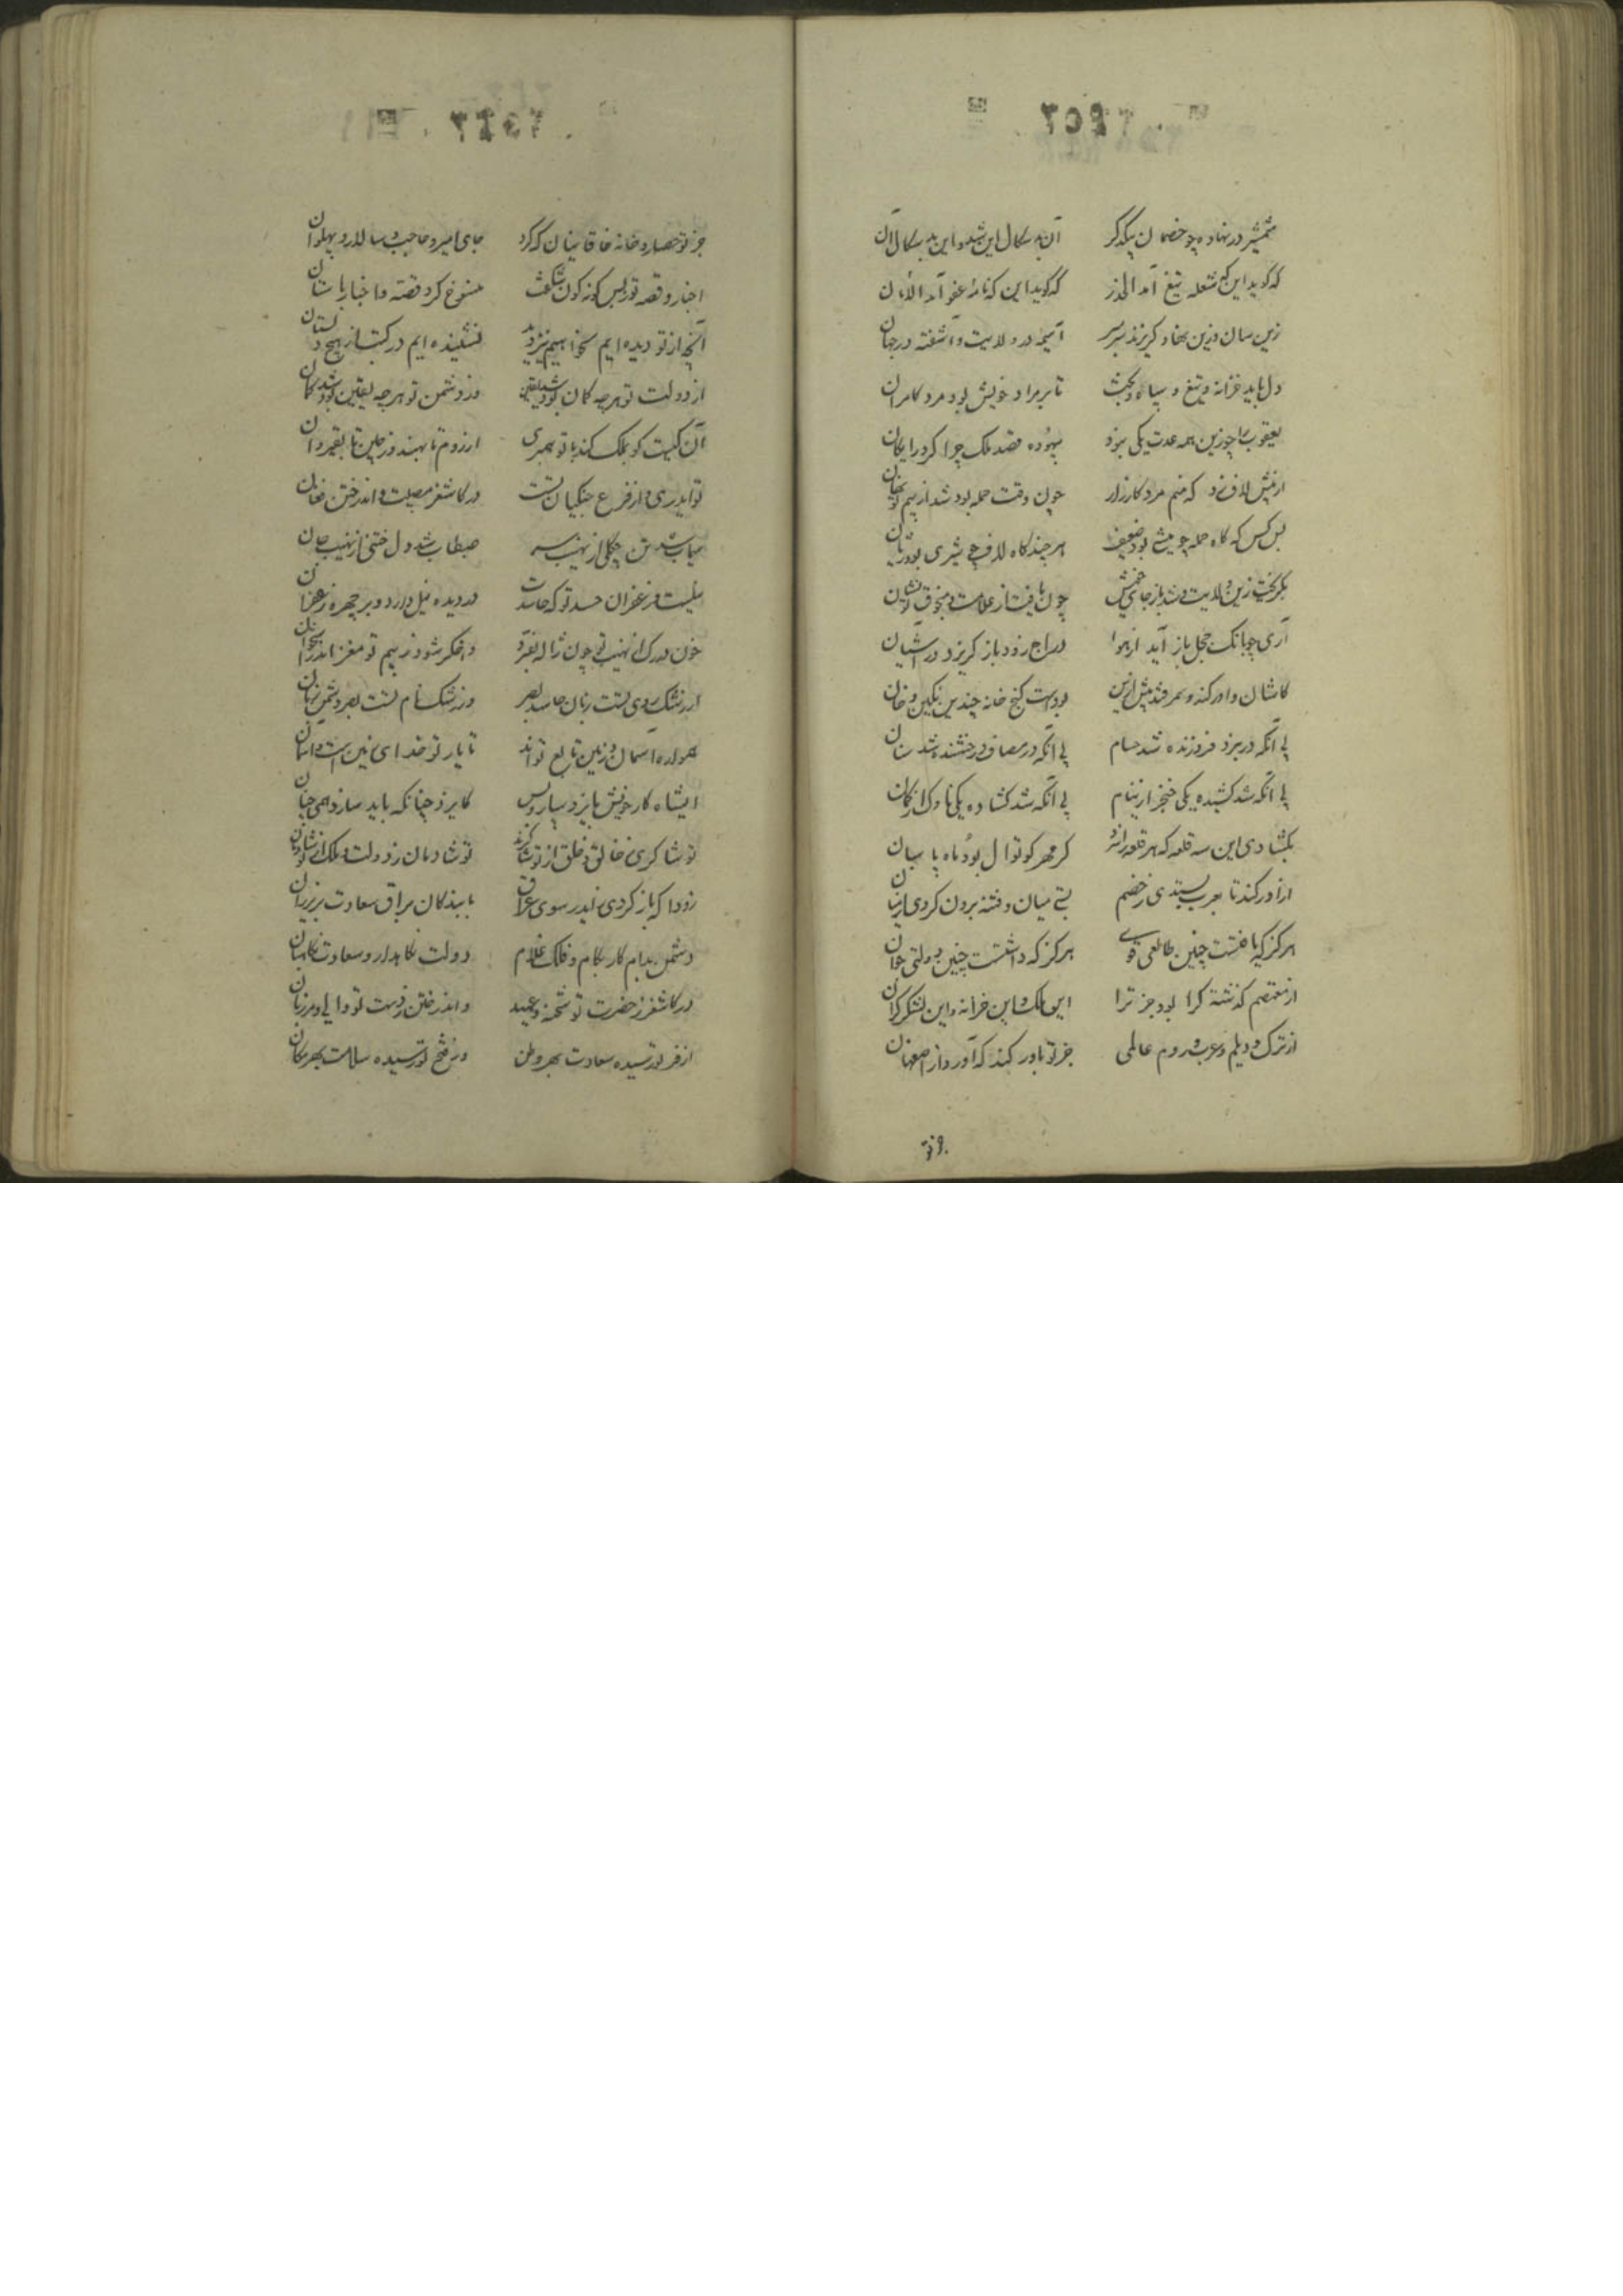 شمشیر در نهاده چو خصمان یکدگر آن بد سکال این شد و این بد سکال آن
که گوید این که شعله تیغ آمد الحذر که گوید این که نامهٔ عفو آمد الامان
زین سان وزین نهاد گریزند سربسر آسیمه در ولایت و آشفته در جهان
دل باید و خزانه و تیغ و سپاه و بخت تا بر مراد خویش بود مرد کامران
یعقوب را چو زین همه عدت یکی نبود بیهوده قصد ملک چرا کرد رایکان
از پیش لاف زد که منم مرد کارزار چون وقت حمله بود شد از بیم تو نهان
بس کس که گاه حمله چو میشی بود ضعیف هر چند گاه لاف چو شیری بود ژیان
بگریخت زین ولایت و شد باز جای خویش چون یافت از علامت و منجوق تو نشان
آری چو بانگ جلجل باز آید از هوا دراج زود باز گریزد در آشیان
کاشان و اورکند و سمرقند پیش ازین بودست گنج خانه چندین نگین و خان
بی آنکه در نبرد فروزنده شد حسام بی آنکه در مصاف درخشنده شد سنان
بی آنکه شد کشیده یکی خنجر از نیام بی آنکه شد کشاده یکی ناوک از کمان
بکشادی این سه قلعه که هر قلعه را نژد کر مهر کوتوال بود ماه پاسبان
از اورکند تا بعرب بستدی ز خصم بستی میان و فتنه برون کردی از میان
هرگز که یافتست چنین طالعی قوی هرگز که داشتست چنین دولتی جوان
از معتصم گذشته کرا بود جز ترا این ملک و این خزانه و این لشکر گران
از ترک و دیلم و عرب و روم عالمی جز تو باور کند که آورد از اصفهان
جز تو
جز تو حصار و خانه خاقانیان که کرد جای امیر و حاجب و سالار و پهلوان
اخبار و قصه تو بس گونه گون شکفت منسوخ کرد قصه و اخبار باستان
آنچه از تو دیده ایم نخواهیم نیز دید نشنیده ایم در کتب از هیچ داستان
از دولت تو هر چه گمان بود شد یقین وز دشمن تو هر چه یقین بود شد گمان
آن کیست کو بملک کند با تو همبری از روم تا بهند وز چین تا بقیروان
تو ایدری و از فزع جنگیان تست در کاشغر مصیبت و اندر ختن فغان
سیماب شد تن چگلی از نهیب سر صبطاب شد دل ختنی از نهیب جان
نیلست و زعفران حسد تو که حاسدت در دیده نیل دارد و بر چهره زعفران
خون در رگ از نهیب تو چون ژاله بفسرد و اخگر شود ز بیم تو مغز اندر استخوان
از رشک روی تست زیان حاسد بصر وز رشک نام تست بصر دشمن زبان
همواره آسمان و زمین تابع تواند تا یار تو خدای زمین است و آسمان
ای شاه کار خویش بایزد سپار و بس کایزد چنانکه باید سازد همی چنان
تو شاکری ز خالق و خلق از تو شاکرند تو شادمان ز دولت و ملک از تو شادمان
زودا که باز کردی از ایدر سوی عراق با بندگان براق سعادت بزیر ران
دشمن بدام کار بکام و فلک غلام دولت نگاهدار و سعادت نگاهبان
در کاشغر ز حضرت تو شحنه و عمید و اندر ختن ز دست تو والی و مرزبان
از فر تو رسیده سعادت بهر وطن وز فتح تو رسیده سلامت بهر مکان